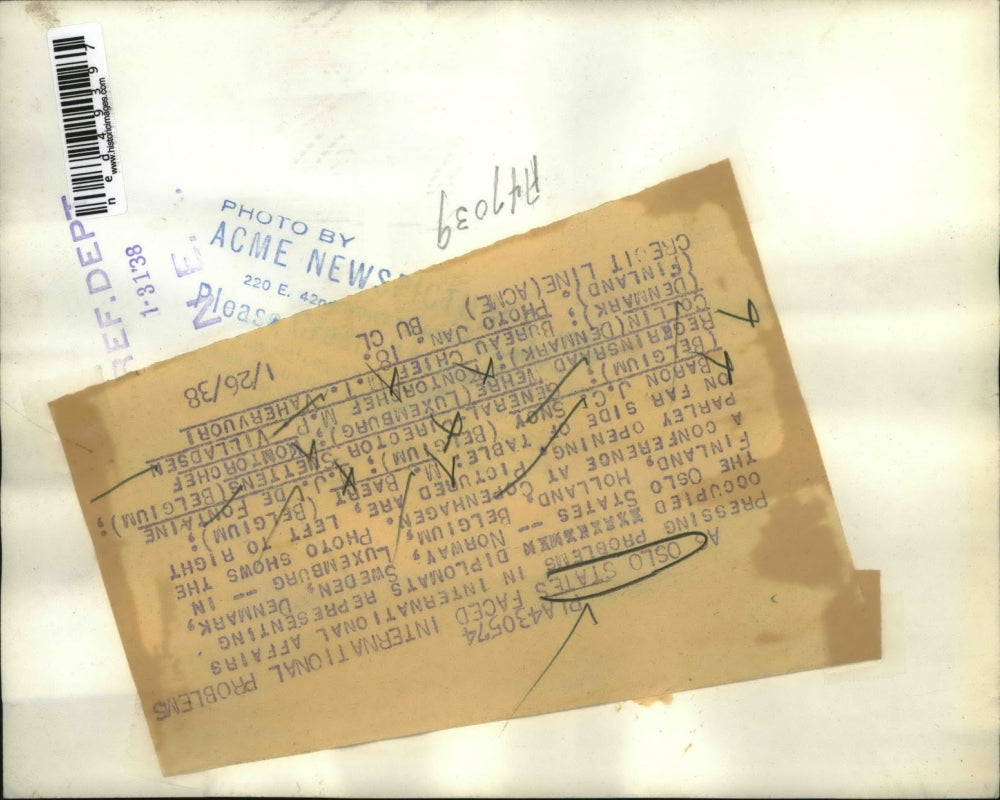 n e d 4 9 3 9 7
www.historicimages.com
REF. DEPT
1-31'38
N. E.
PHOTO BY
ACME NEWS
220 E. 42
Please
A47039
PLA430574
OSLO STATES FACED INTERNATIONAL PROBLEMS
PRESSING XXXXXXX PROBLEMS IN INTERNATIONAL AFFAIRS
OCCUPIED DIPLOMATS REPRESENTING
THE OSLO STATES -- NORWAY, SWEDEN, DENMARK,
FINLAND, HOLLAND, BELGIUM, LUXEMBURG -- IN
A CONFERENCE AT COPENHAGEN. PHOTO SHOWS THE
PARLEY OPENING. PICTURED ARE, LEFT TO RIGHT
ON FAR SIDE OF TABLE, M. BAERT (BELGIUM);
BARON J.C. SNOY (BELGIUM); J. DE FONTAINE
(BELGIUM); GENERAL DIRECTOR SMETTENS(BELGIUM);
(LUXEMBURG); KONTORCHEF
COLLIN(DENMARK); KONTORCHEF P. VILLADSEN
(DENMARK); BUREAU CHIEF VAHERVUORI
(FINLAND)
CREDIT LINE (ACME) PHOTO JAN
BU CL 1/26/38